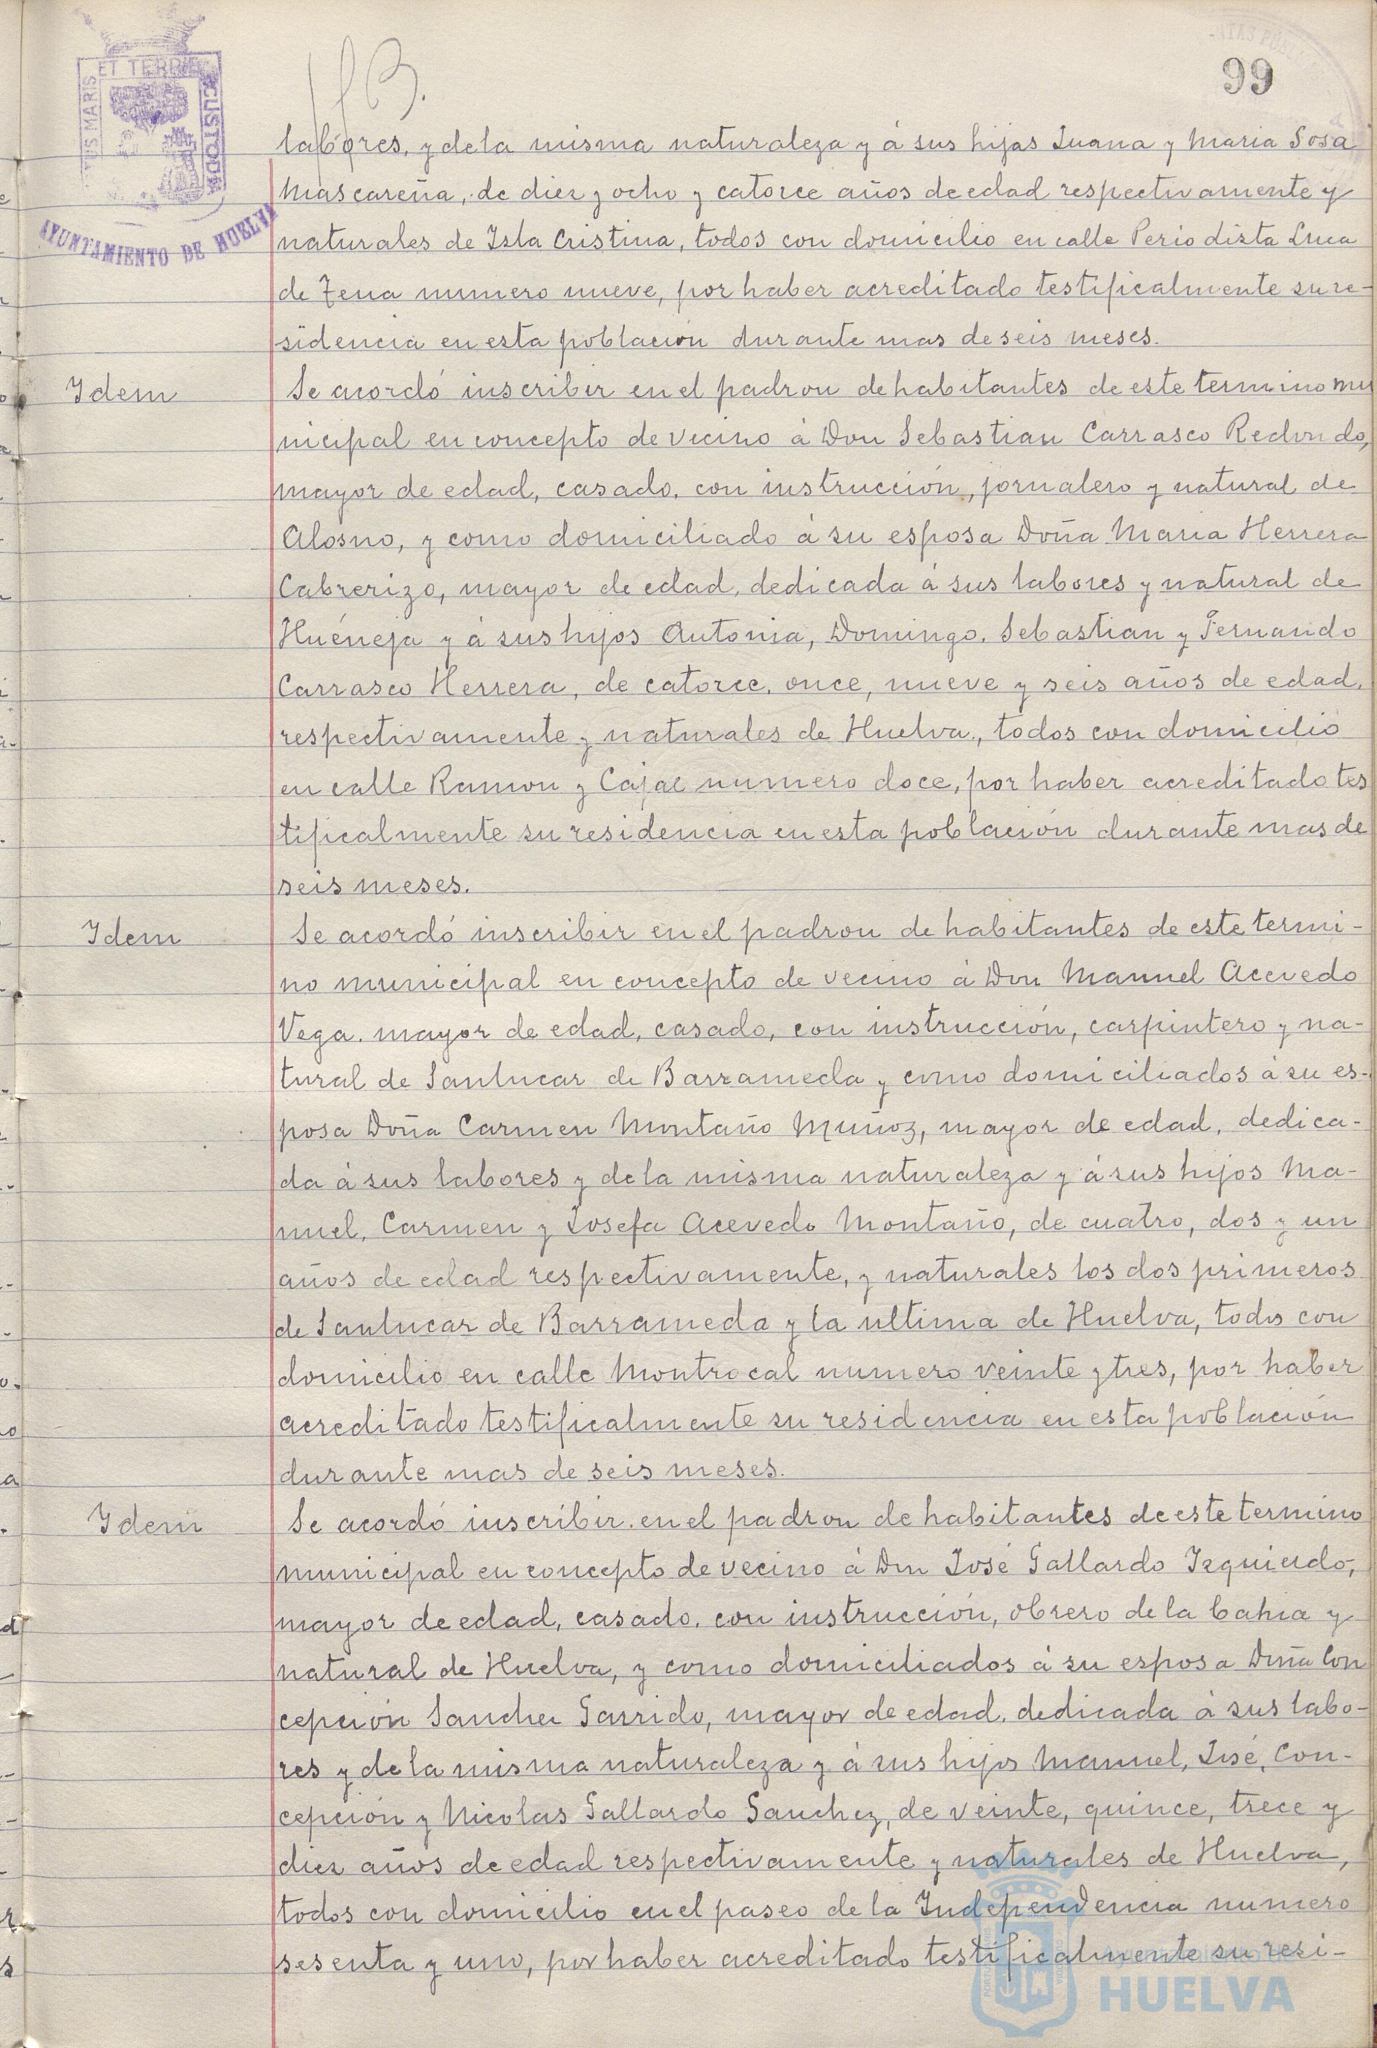 99
labores, y de la misma naturaleza y á sus hijas Juana y Maria Sosa
Mascareña, de diez y ocho y catorce años de edad respectivamente y
naturales de Isla Cristina, todos con domicilio en calle Periodista Luca
de Tena numero nueve, por haber acreditado testificalmente su re-
sidencia en esta población durante mas de seis meses.
Idem
Se acordó inscribir en el padron de habitantes de este termino mu
nicipal en concepto de vecino á Don Sebastian Carrasco Redondo,
mayor de edad, casado, con instrucción, jornalero y natural de
Alosno, y como domiciliado á su esposa Doña Maria Herrera
Cabrerizo, mayor de edad, dedicada á sus labores y natural de
Huéneja y á sus hijos Antonia, Domingo, Sebastian y Fernando
Carrasco Herrera, de catorce, once, nueve y seis años de edad,
respectivamente y naturales de Huelva, todos con domicilio
en calle Ramon y Cajal numero doce, por haber acreditado tes
tificalmente su residencia en esta población durante mas de
seis meses.
Idem
Se acordó inscribir en el padron de habitantes de este termi-
no municipal en concepto de vecino á Don Manuel Acevedo
Vega, mayor de edad, casado, con instrucción, carpintero y na-
tural de Sanlucar de Barrameda y como domiciliados á su es-
posa Doña Carmen Montaño Muñoz, mayor de edad, dedica-
da á sus labores y de la misma naturaleza y á sus hijos Ma-
nuel, Carmen y Josefa Acevedo Montaño, de cuatro, dos y un
años de edad respectivamente, y naturales los dos primeros
de Sanlucar de Barrameda y la ultima de Huelva, todos con
domicilio en calle Montrocal numero veinte y tres, por haber
acreditado testificalmente su residencia en esta población
durante mas de seis meses.
Idem
Se acordó inscribir en el padron de habitantes de este termino
municipal en concepto de vecino á Don José Gallardo Izquierdo,
mayor de edad, casado, con instrucción, obrero de la bahia y
natural de Huelva, y como domiciliados á su esposa Doña Con
cepción Sanchez Garrido, mayor de edad, dedicada á sus labo-
res y de la misma naturaleza y á sus hijos Manuel, José, Con-
cepción y Nicolas Gallardo Sanchez, de veinte, quince, trece y
diez años de edad respectivamente y naturales de Huelva,
todos con domicilio en el paseo de la Independencia numero
sesenta y uno, por haber acreditado testificalmente su resi-
ET TERRE
CUSTODIA
TUS MARIS
AYUNTAMIENTO DE HUELVA
HUELVA